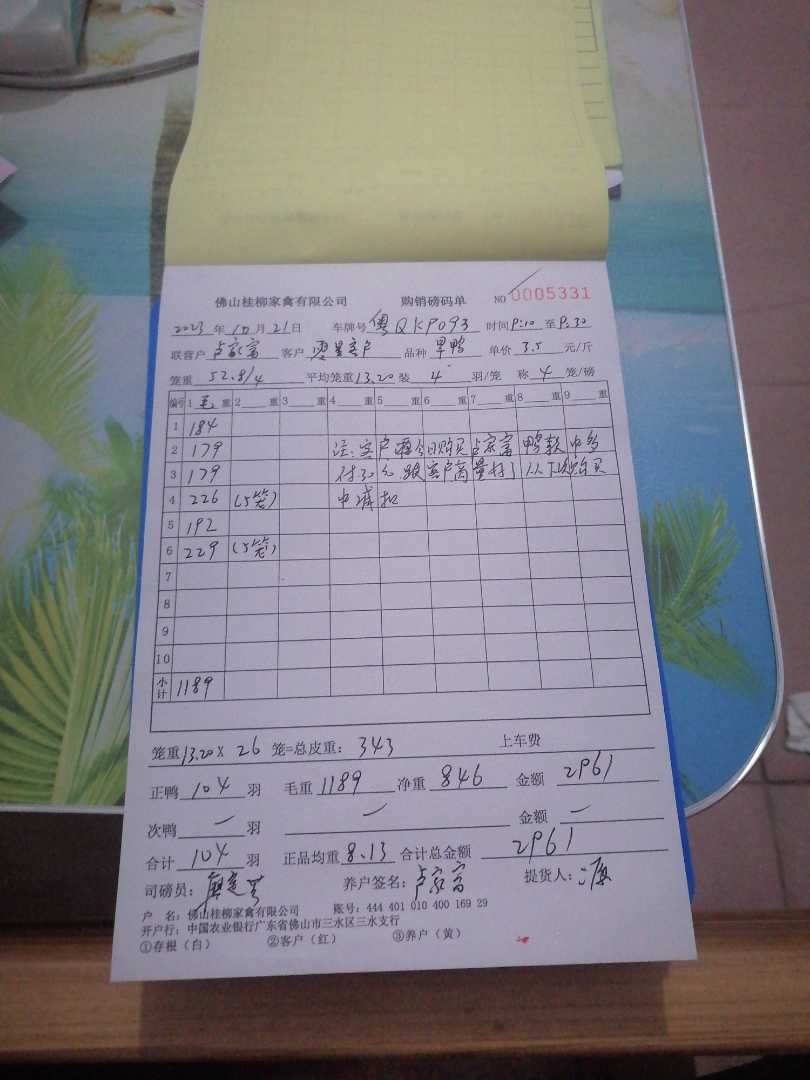 佛山桂柳家禽有限公司 购销磅码单 NO 0005331
2023年10月21日 车牌号 粤QKP093 时间 9:10 至 9:30
联营户 卢家富 客户 客户 品种 旱鸭 单价 3.5 元/斤
笼重 52.8/4 平均笼重 13.20 装 4 羽/笼 称 4 笼/磅
编号 1 毛 重 2 重 3 重 4 重 5 重 6 重 7 重 8 重 9 重
1 184
2 179 注:客户今日购买卢家富鸭款中多
3 179 付30元,跟客户商量好了以下购买
4 226 (5笼) 中 扣
5 192
6 229 (5笼)
7
8
9
10
小计 1189
笼重 13.20 X 26 笼=总皮重: 343 上车费
正鸭 104 羽 毛重 1189 净重 846 金额 2961
次鸭 — 羽 — 金额 —
合计 104 羽 正品均重 8.13 合计总金额 2961
司磅员: 养户签名: 卢家富 提货人:
户 名: 佛山桂柳家禽有限公司 账号: 444 401 010 400 169 29
开户行: 中国农业银行广东省佛山市三水区三水支行
①存根(白) ②客户(红) ③养户(黄)